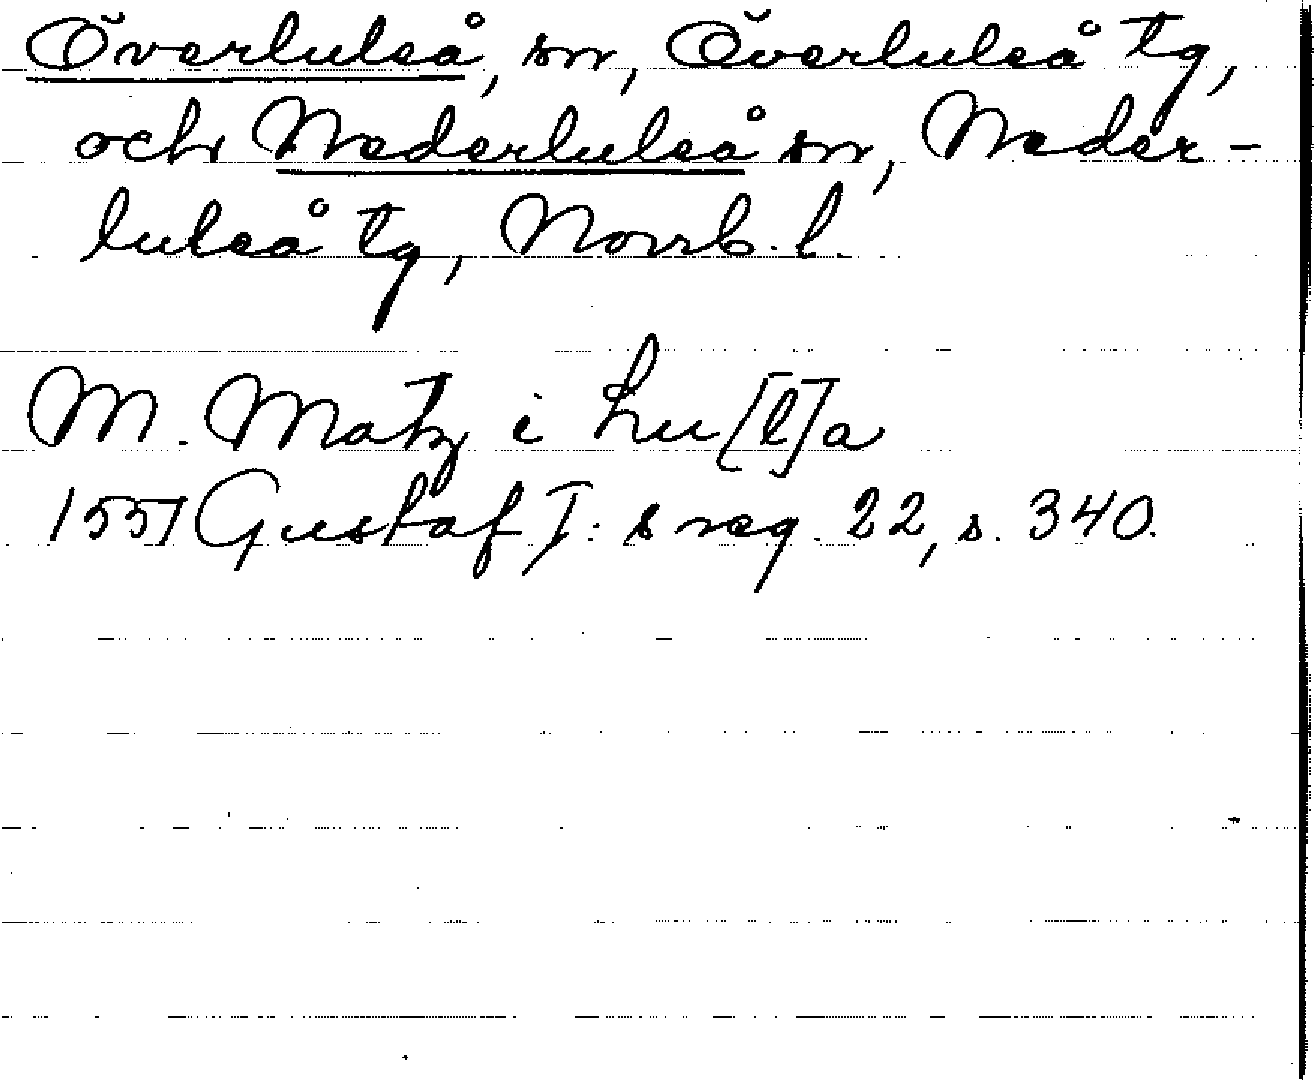 Överluleå, sn, Överluleå tg,
och Nederluleå sn, Neder-
luleå tg, Norrb. l.
M. Matz i Lu[l]a
1551 Gustaf I: s reg. 22, s. 340.